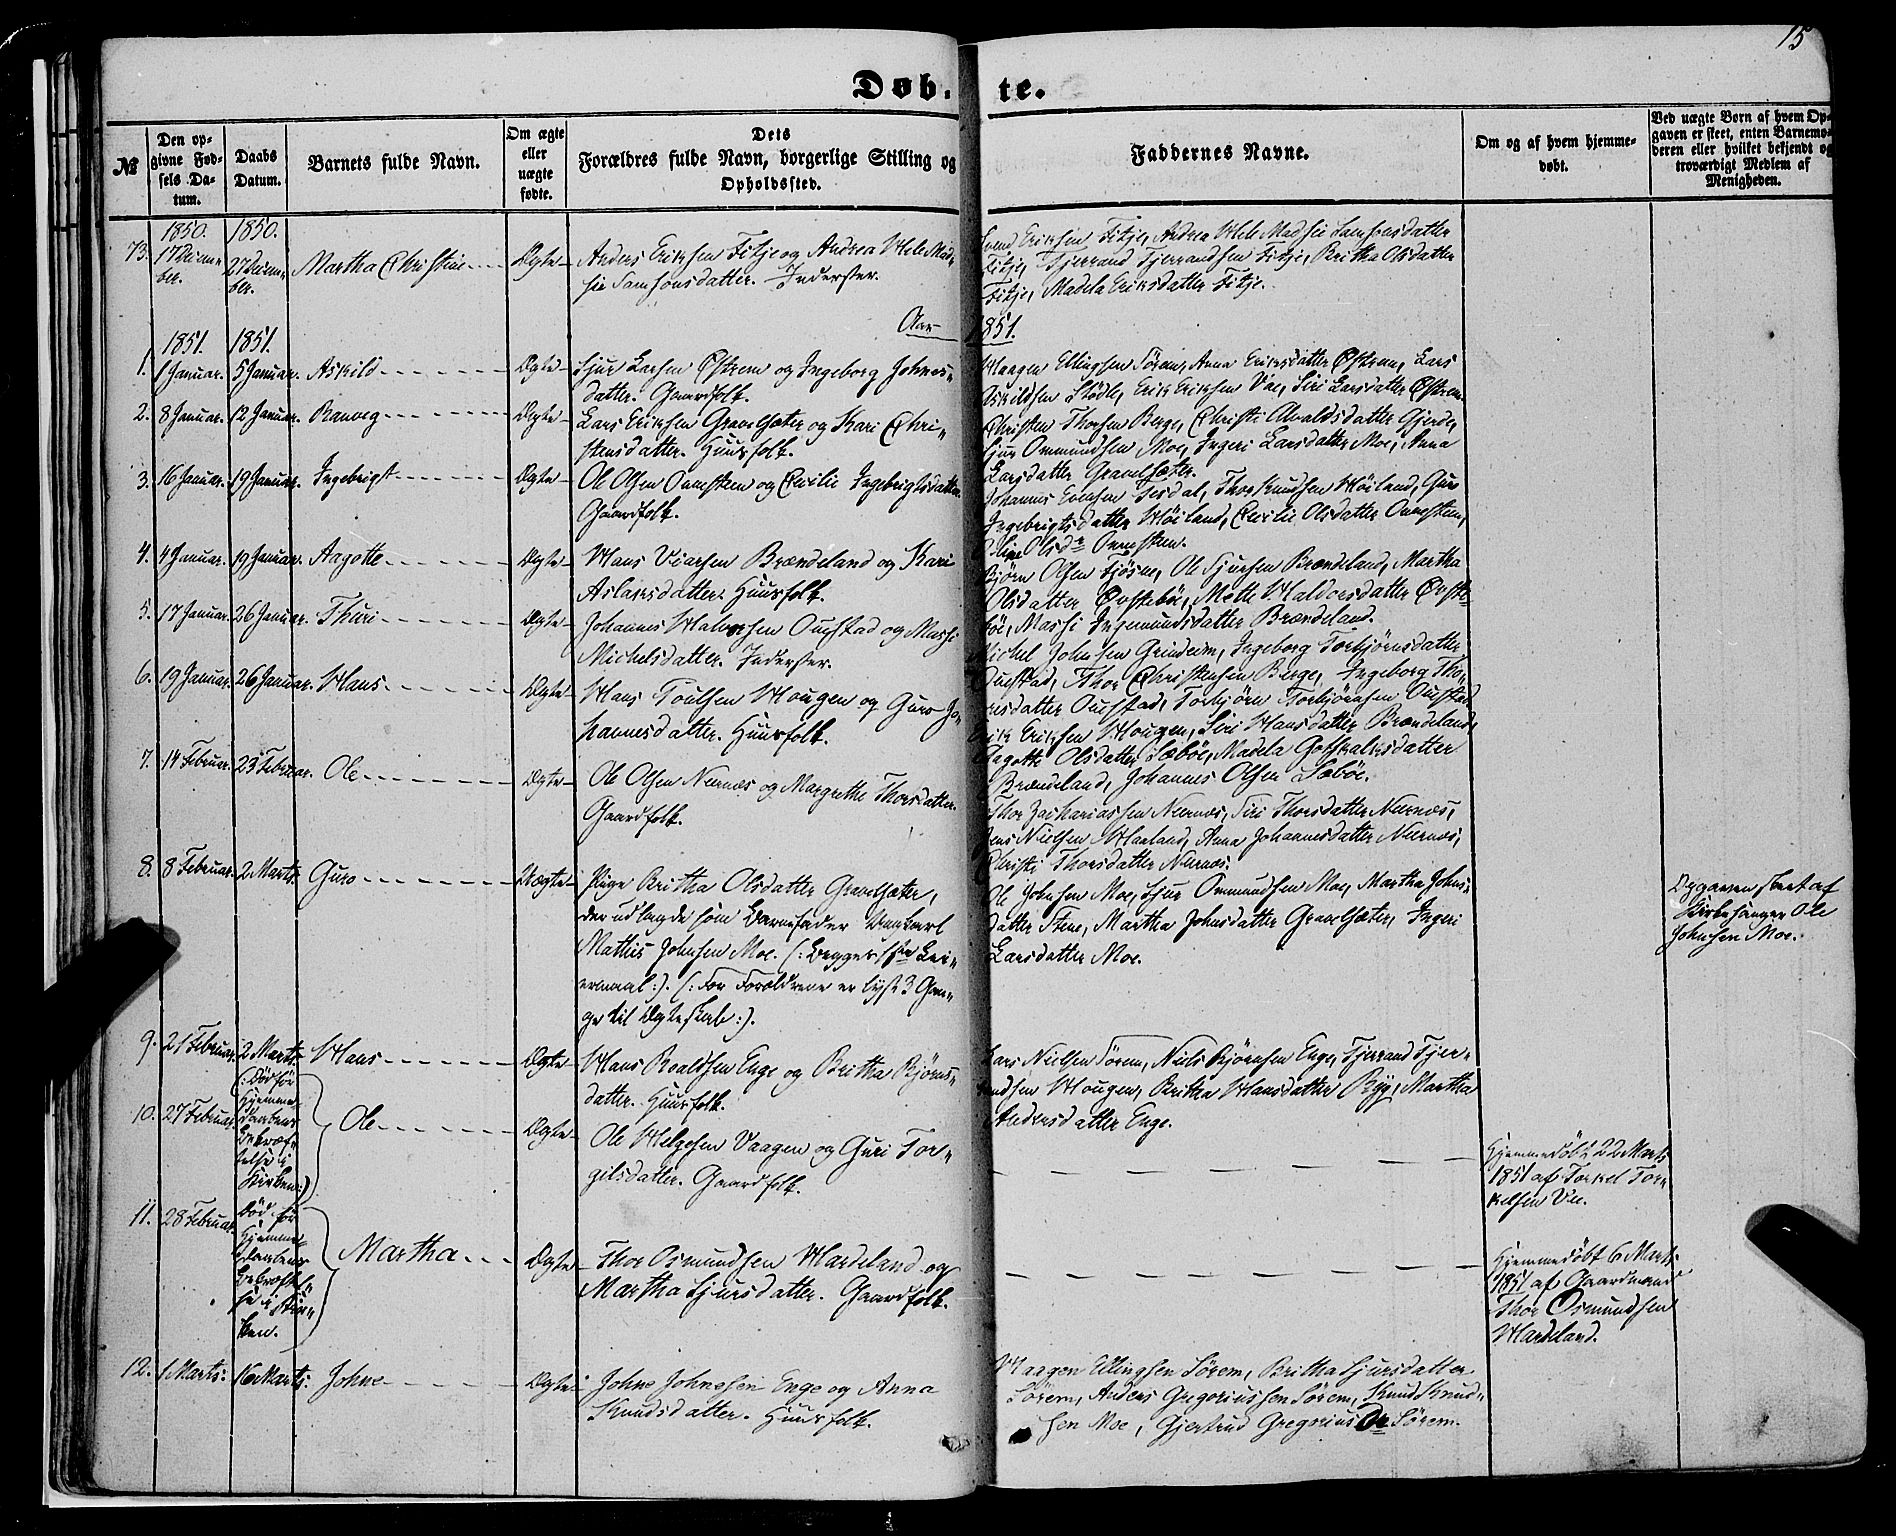 15
Døb. te.
№
Den opgivne Fødsels Datum.
Daabs Datum.
Barnets fulde Navn.
Om ægte eller uægte fødte.
Dets Forældres fulde Navn, borgerlige Stilling og Opholdssted.
Faddernes Navne.
Om og af hvem hjemmedøbt.
Ved uægte Børn af hvem Opgaven er skeet, enten Barnemoderen eller hvilket bekjendt og troværdigt Medlem af Menigheden.
1850. 1850.
73. 17 Decem=
ber. 27 Decem=
ber. Martha Christine Ægte
Anders Eriksen Fitje og Andrea Hele Mad=
sie Samsonsdatter. Inderster.
Svend Eriksen Fitje, Andrea Hele Madsie Samsonsdatter
Fitje, Tjerrand Tjerrandsen Fitje, Britha Olsdatter
Fitje, Madela Eriksdatter Fitje.
Aar 1851.
1851. 1851.
1. 1 Januar. 5 Januar. Askild Ægte
Sjur Larsen Østrem og Ingeborg Johnes=
datter. Gaardfolk.
Haagen Ellingsen Sørem, Anna Eriksdatter Østrem, Lars
Askildsen Stødle, Erik Eriksen Vae, Siri Larsdatter Østrem.
2. 8 Januar. 12 Januar. Ranveg Ægte
Lars Eriksen Gravelsæter og Kari Chri=
stensdatter. Huusfolk.
Christen Thorsen Berge, Christi Alvaldsdatter Gjerde,
Sjur Ommundsen Moe, Ingeri Larsdatter Moe, Anna
Larsdatter Gravelsæter.
3. 16 Januar. 19 Januar. Ingebrigt Ægte
Ole Olsen Onnesteen og Cecilie Ingebrigtsdatter.
Gaardfolk.
Johannes Evensen Tesdal, Thor Knudsen Høiland, Guro
Ingebrigtsdatter Høiland, Cecilie Olsdatter Onnesteen,
Eline Olsdr Onnesteen.
4. 4 Januar. 19 Januar. Aagotte Ægte
Hans Viarsen Brændeland og Kari
Aslaksdatter. Huusfolk.
Bjørn Olsen Fjøsne, Ole Sjursen Brændeland, Martha
Olsdatter Østebøe, Motte Haldorsdatter Øvste=
bøe, Massi Ingemundsdatter Brændeland.
5. 17 Januar. 26 Januar. Thuri Ægte
Johannes Halvorsen Ouestad og Massi
Michelsdatter. Inderster.
Michel Johnsen Grindeim, Ingeborg Torbjørnsdatter
Ouestad, Thor Christensen Berge, Ingeborg Tho=
resdatter Ouestad, Torbjørn Torbjørnsen Ouestad.
6. 19 Januar. 26 Januar. Hans Ægte
Hans Poulsen Hougen og Guro Jo=
hannesdatter. Huusfolk.
Erik Eriksen Hougen, Siri Hansdatter Brændeland,
Aagotte Olsdatter Sæbøe, Madela Gotskalksdatter
Brændeland, Johannes Olsen Sæbøe.
7. 14 Februar. 23 Februar. Ole Ægte
Ole Olsen Nernæs og Margrethe Thorsdatter.
Gaardfolk.
Thor Zachariassen Nernæs, Siri Thorsdatter Nernæs,
Jens Nielsen Haaland, Anna Johannesdatter Nernæs,
Christi Thorsdatter Nernæs.
8. 8 Februar. 2 Marts. Guro Uægte
Pige Britha Olsdatter Gravelsæter,
der udlagde som Barnefader Ungkarl
Mathis Johnsen Moe. (: Begges 1ste Lei=
ermaal :). (: For Forældrene er lyst 3 Gan=
ge til Ægteskab :).
Ole Johnsen Moe, Sjur Ommundsen Moe, Martha Johns=
datter Stene, Martha Johnsdatter Gravelsæter, Ingeri
Larsdatter Moe.
Opgaven skeet af
Kirkesanger Ole
Johnsen Moe.
9. 21 Februar. 2 Marts. Hans Ægte
Hans Roaldsen Enge og Britha Bjørns=
datter. Huusfolk.
Lars Nielsen Sørem, Niels Bjørnsen Enge, Tjerrand Tjer=
randsen Hougen, Britha Hansdatter Ryg, Martha
Andersdatter Enge.
10. 27 Februar. (: Død før
Hjemme
daabens
Bekræf=
telse i
Kirken :) Ole Ægte
Ole Helgesen Vaagen og Guri Tor=
gilsdatter. Gaardfolk.
Hjemmedøbt 22 Marts
1851 af Torkel Tor=
kelsen Vae.
11. 28 Februar. Død før
Hjemme=
daabens
Bekræftel=
se i Kir=
ken. Martha Ægte
Thor Osmundsen Hardeland og
Martha Sjursdatter. Gaardfolk.
Hjemmedøbt 6 Marts
1851 af Gaardmand
Thor Osmundsen
Hardeland.
12. 1 Marts. 16 Marts. Johne Ægte
Johne Johnesen Enge og Anna
Knudsdatter. Huusfolk.
Haagen Ellingsen Sørem, Britha Sjursdatter
Sørem, Anders Gregoriussen Sørem, Knud Knud=
sen Moe, Gjertrud Gregorius Dr Sørem.